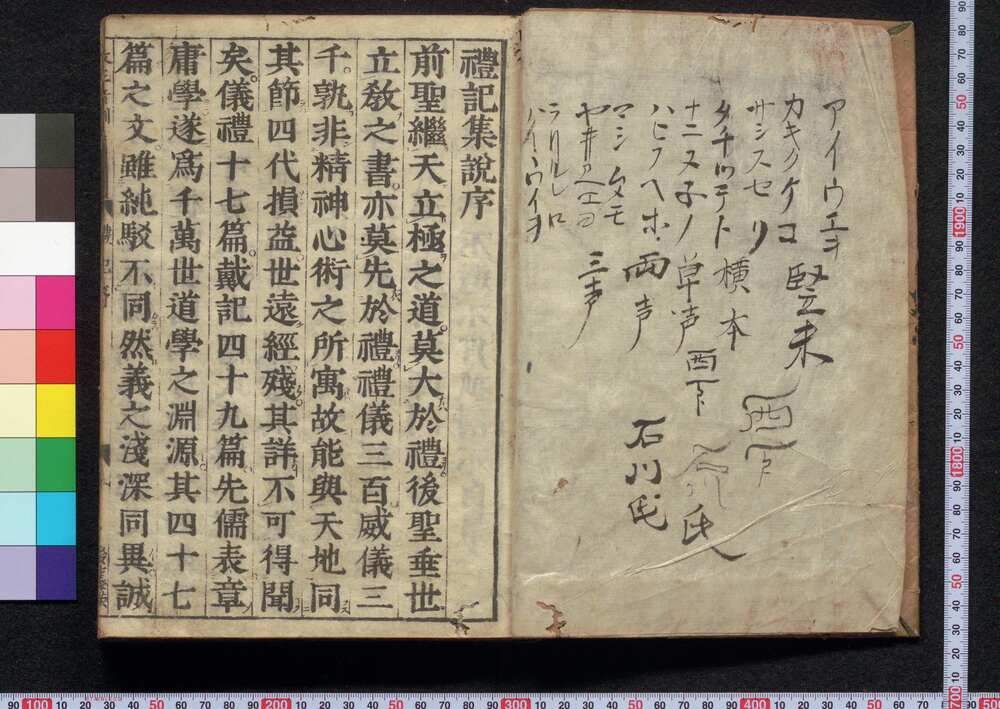 アイウエヲ
カキクケコ 竪未
サシスセソ 西下
タチツテト 横本
ナニヌネノ 草声 西下 氏
ハヒフヘホ 両声 石川氏
マミムメモ 三声
ヤ
ラリルレロ
禮記集說序
前聖繼天立極之道莫大於禮後聖垂世
立敎之書亦莫先於禮禮儀三百威儀三
千孰非精神心術之所寓故能與天地同
其節四代損益世遠經殘其詳不可得聞
矣儀禮十七篇戴記四十九篇先儒表章
庸學遂爲千萬世道學之淵源其四十七
篇之文雖純駁不同然義之淺深同異誠